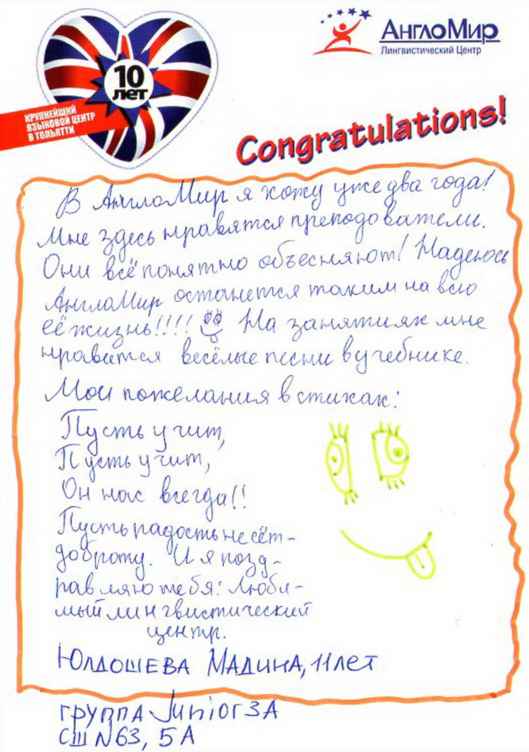 10
лет
КРУПНЕЙШИЙ
ЯЗЫКОВОЙ ЦЕНТР
В ТОЛЬЯТТИ
АнглоМир
Лингвистический Центр
Congratulations!
В АнглоМир я хожу уже два года!
Мне здесь нравятся преподователи.
Они всё понятно объесняют! Надеюсь
АнглаМир останется таким на всю
её жизнь!!!! На занятиях мне
нравится весёлые песни в учебнике.
Мои пожелания в стихах:
Пусть учит,
Пусть учит,
Он нас всегда!!
Пусть радость несёт-
доброту. И я позд-
равляю тебя: люби-
мый лингвистический
центр.
ЮЛДОШЕВА МАДИНА, 11 ЛЕТ
ГРУППА Junior 3A
СШ N63, 5А